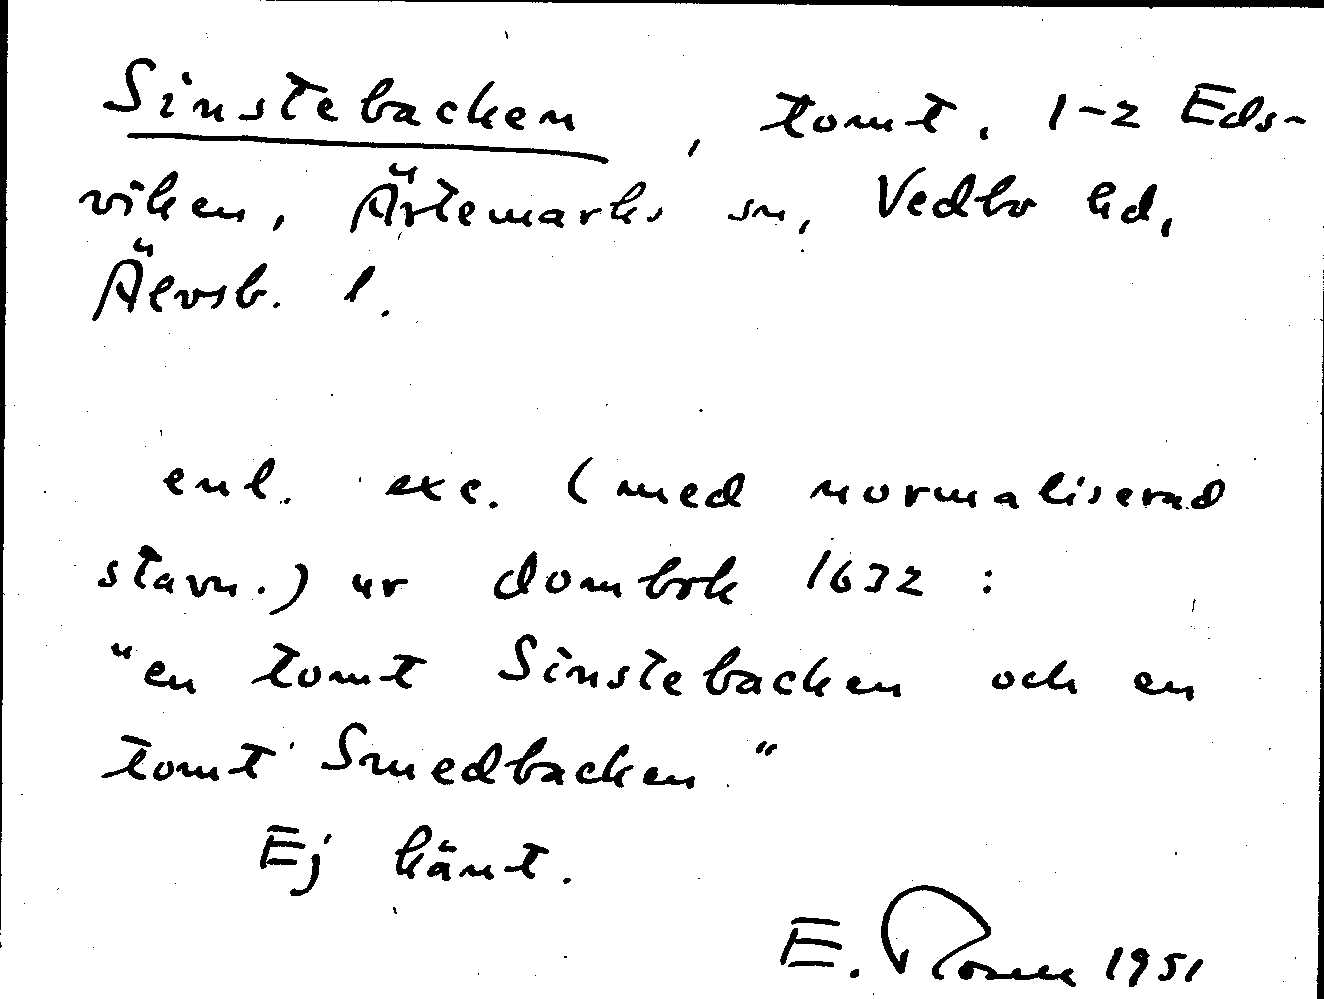 Sinstebacken, tomt. 1-2 Eds-
viken, Ärtemarks sn, Vedbo hd,
Älvsb. l.
enl. exc. (med normaliserad
stavn.) ur dombok 1632 :
"en tomt Sinstebacken och en
tomt Smedbacken."
Ej känt.
E. Rosén 1951